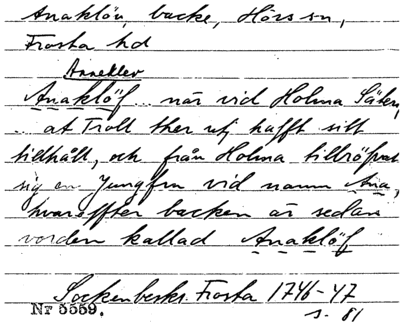 Anaklöv, backe, Hörs sn,
Frosta hd
Anneklev
Anaklöf... när vid Holma Säteri,
... at Troll ther utj hafft sitt
tillhåll, och från Holma tillröfvat
sig en Jungfru vid namn Ana,
hvaröffter backen är sedan
vorden kallad Anaklöf
Sockenbeskr. Frosta 1746-47
s. 81
Nr 5559.